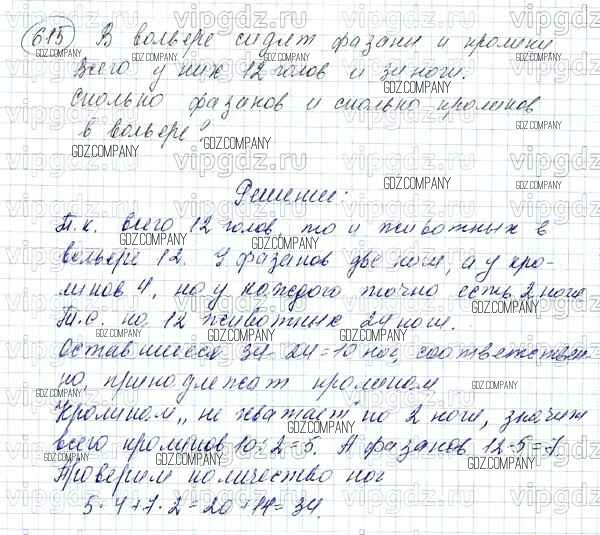 615 В вольере сидят фазаны и кролики
Всего у них 12 голов и 34 ноги.
Сколько фазанов и сколько кроликов
в вольере?
Решение:
Т.к. всего 12 голов, то и животных в
вольере 12. У фазанов две ноги, а у кро-
ликов 4, но у каждого точно есть 2 ноги
Т.е. на 12 животных 24 ноги.
Оставшиеся 34-24=10 ног, соответствен
но, принадлежат кроликам
"Кроликам" не хватает по 2 ноги, значит
всего кроликов 10:2=5. А фазанов 12-5=7.
Проверим количество ног
5·4+7·2=20+14=34.